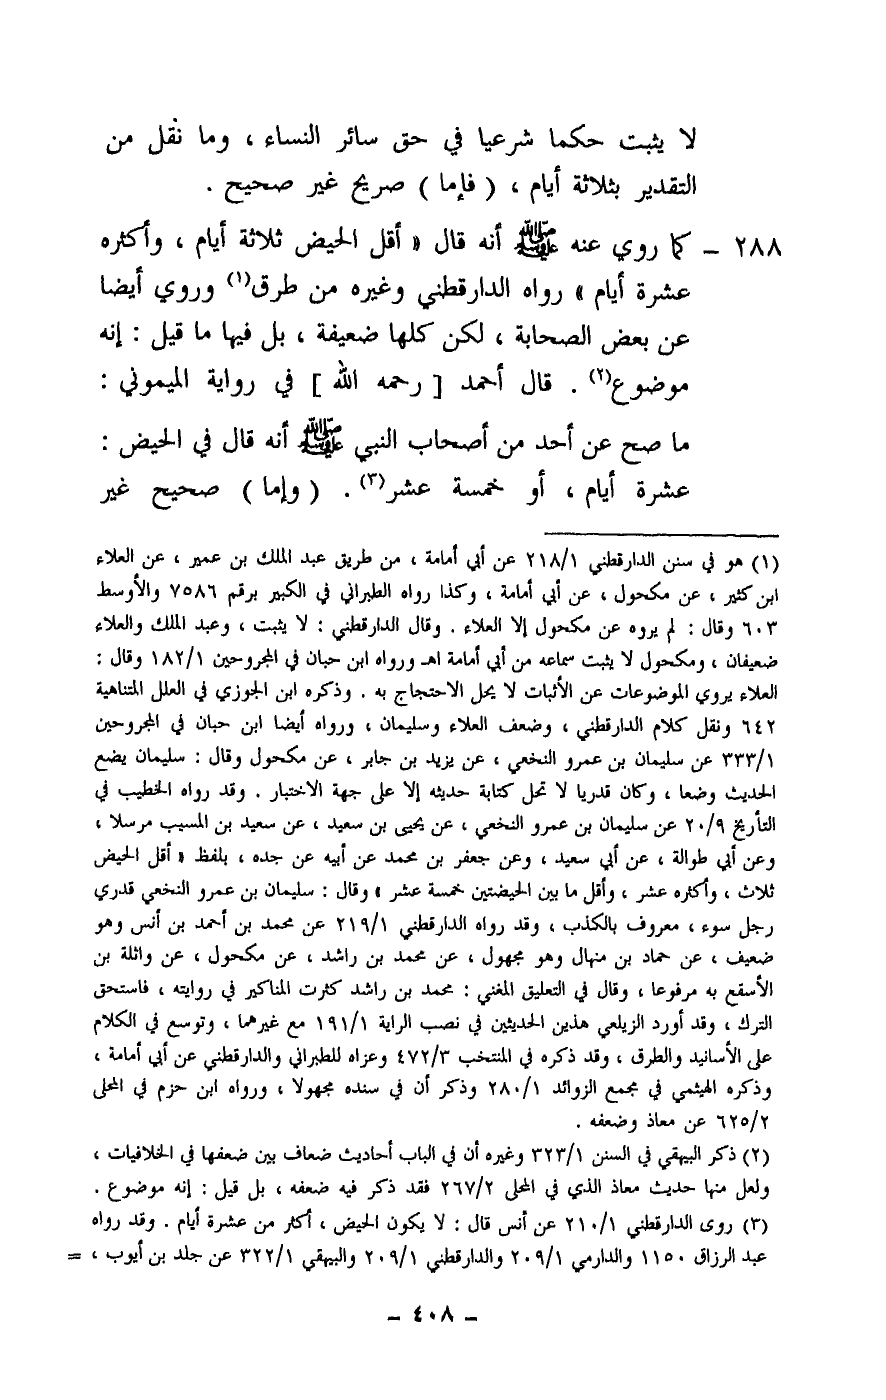 لا يثبت حكما شرعيا في حق سائر النساء ، وما نقل من
التقدير بثلاثة أيام ، ( فإما ) صريح غير صحيح .
٢٨٨ – كما روي عنه ﷺ أنه قال « أقل الحيض ثلاثة أيام ، وأكثره
عشرة أيام » رواه الدارقطني وغيره من طرق(١) وروي أيضا
عن بعض الصحابة ، لكن كلها ضعيفة ، بل فيها ما قيل : إنه
موضوع(٢) . قال أحمد [ رحمه الله ] في رواية الميموني :
ما صح عن أحد من أصحاب النبي ﷺ أنه قال في الحيض :
عشرة أيام ، أو خمسة عشر(٣) . ( وإما ) صحيح غير
(١) هو في سنن الدارقطني ٢١٨/١ عن أبي أمامة ، من طريق عبد الملك بن عمير ، عن العلاء
ابن كثير ، عن مكحول ، عن أبي أمامة ، وكذا رواه الطبراني في الكبير برقم ٧٥٨٦ والأوسط
٦٠٣ وقال : لم يروه عن مكحول إلا العلاء . وقال الدارقطني : لا يثبت ، وعبد الملك والعلاء
ضعيفان ، ومكحول لا يثبت سماعه من أبي أمامة اهـ ورواه ابن حبان في المجروحين ١٨٢/١ وقال :
العلاء يروي الموضوعات عن الأثبات لا يحل الاحتجاج به . وذكره ابن الجوزي في العلل المتناهية
٦٤٢ ونقل كلام الدارقطني ، وضعف العلاء وسليمان ، ورواه أيضا ابن حبان في المجروحين
٣٣٣/١ عن سليمان بن عمرو النخعي ، عن يزيد بن جابر ، عن مكحول وقال : سليمان يضع
الحديث وضعا ، وكان قدريا لا تحل كتابة حديثه إلا على جهة الاختبار . وقد رواه الخطيب في
التأريخ ٢٠/٩ عن سليمان بن عمرو النخعي ، عن يحيى بن سعيد ، عن سعيد بن المسيب مرسلا ،
وعن أبي طوالة ، عن أبي سعيد ، وعن جعفر بن محمد عن أبيه عن جده ، بلفظ « أقل الحيض
ثلاث ، وأكثره عشر ، وأقل ما بين الحيضتين خمسة عشر » وقال : سليمان بن عمرو النخعي قدري
رجل سوء ، معروف بالكذب ، وقد رواه الدارقطني ٢١٩/١ عن محمد بن أحمد بن أنس وهو
ضعيف ، عن حماد بن منهال وهو مجهول ، عن محمد بن راشد ، عن مكحول ، عن واثلة بن
الأسقع به مرفوعا ، وقال في التعليق المغني : محمد بن راشد كثرت المناكير في روايته ، فاستحق
الترك ، وقد أورد الزيلعي هذين الحديثين في نصب الراية ١٩١/١ مع غيرهما ، وتوسع في الكلام
على الأسانيد والطرق ، وقد ذكره في المنتخب ٤٧٢/٣ وعزاه للطبراني والدارقطني عن أبي أمامة ،
وذكره الهيثمي في مجمع الزوائد ٢٨٠/١ وذكر أن في سنده مجهولا ، ورواه ابن حزم في المحلى
٦٢٥/٢ عن معاذ وضعفه .
(٢) ذكر البيهقي في السنن ٣٢٣/١ وغيره أن في الباب أحاديث ضعاف بين ضعفها في الخلافيات ،
ولعل منها حديث معاذ الذي في المحلى ٢٦٧/٢ فقد ذكر فيه ضعفه ، بل قيل : إنه موضوع .
(٣) روى الدارقطني ٢١٠/١ عن أنس قال : لا يكون الحيض ، أكثر من عشرة أيام . وقد رواه
عبد الرزاق ١١٥٠ والدارمي ٢٠٩/١ والدارقطني ٢٠٩/١ والبيهقي ٣٢٢/١ عن جلد بن أيوب ، =
– ٤٠٨ –